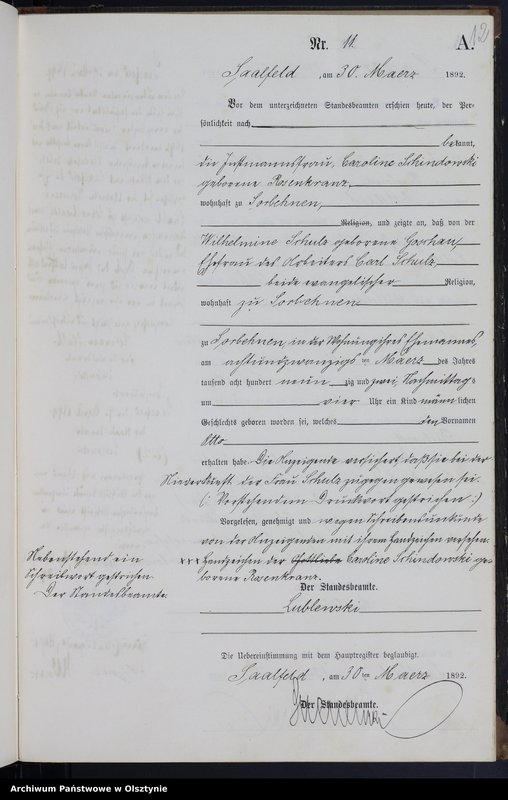 12
Nr. 11. A.
Saalfeld, am 30. Maerz 1892.
Vor dem unterzeichneten Standesbeamten erschien heute, der Per-
sönlichkeit nach
bekannt,
die Instmannsfrau, Caroline Schindowski
geborene Rosenkranz,
wohnhaft zu Sorbehnen,
Religion, und zeigte an, daß von der
Wilhelmine Schulz geborene
Ehefrau des Arbeiters Carl Schulz,
beide evangelischer Religion,
wohnhaft zu Sorbehnen
zu Sorbehnen, in der Wohnung ihres Ehemannes,
am achtundzwanzigsten Maerz des Jahres
tausend acht hundert neunzig und zwei, Nachmittags
um vier Uhr ein Kind männlichen
Geschlechts geboren worden sei, welches den Vornamen
Otto
erhalten habe. Die Anzeigende versichert, daß sie bei der
Niederkunft der Frau Schulz zugegen gewesen sei.
(: Vorstehendem Druckwort gestrichen :)
Vorgelesen, genehmigt und wegen Schreibensunkunde
von der Anzeigenden mit ihrem Handzeichen versehen.
+++ Handzeichen der Gottliebe Caroline Schindowski ge-
borene Rosenkranz.
Nebenstehend ein
Schreibwort gestrichen.
Der Standesbeamte.
Der Standesbeamte.
Lublewski
Die Uebereinstimmung mit dem Hauptregister beglaubigt.
Saalfeld, am 30ten Maerz 1892.
Der Standesbeamte.
Archiwum Państwowe w Olsztynie